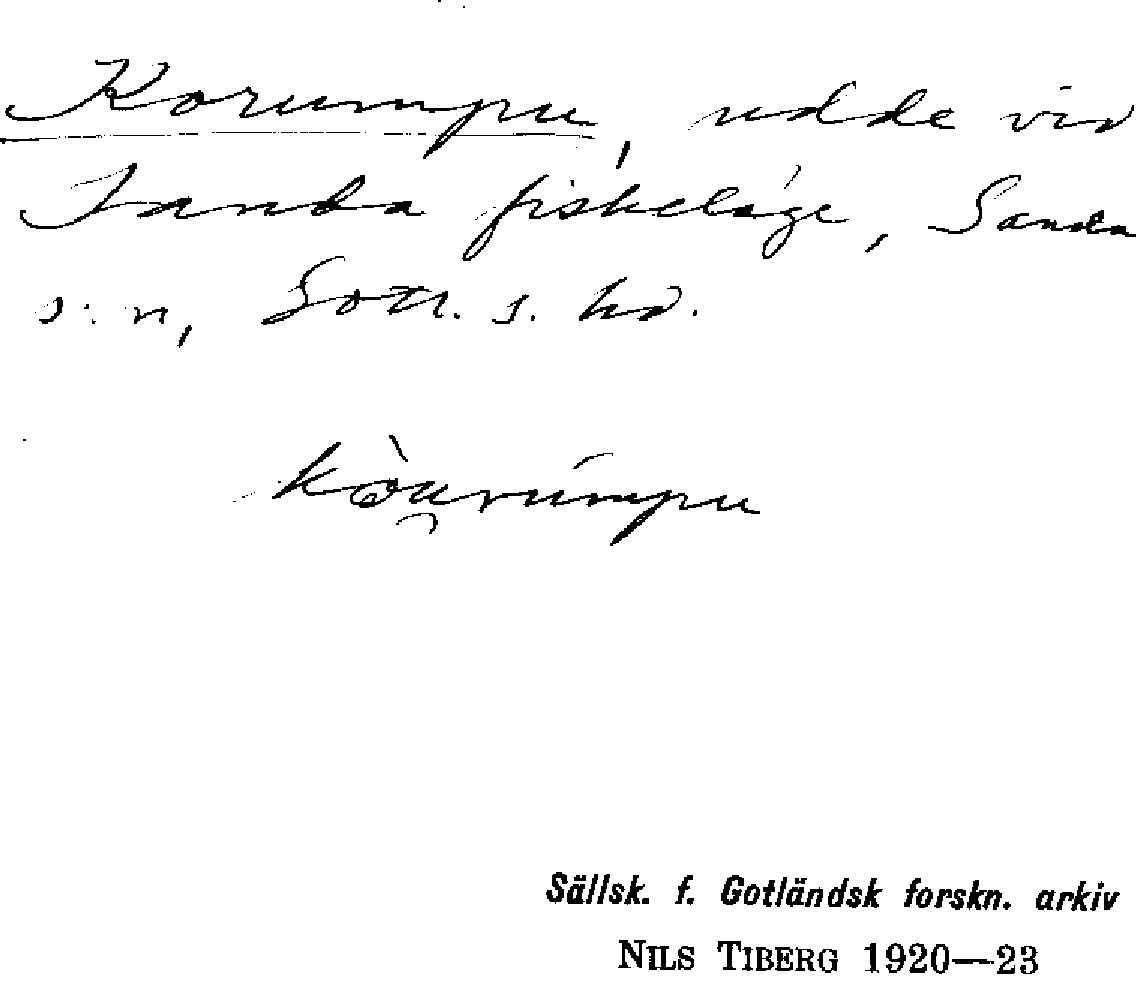 Korumpu, udde vid
Sanda fiskeläge, Sanda
s:n, Gotl. s. hd.
kòu̯rúmpu
Sällsk. f. Gotländsk forskn. arkiv
NILS TIBERG 1920—23